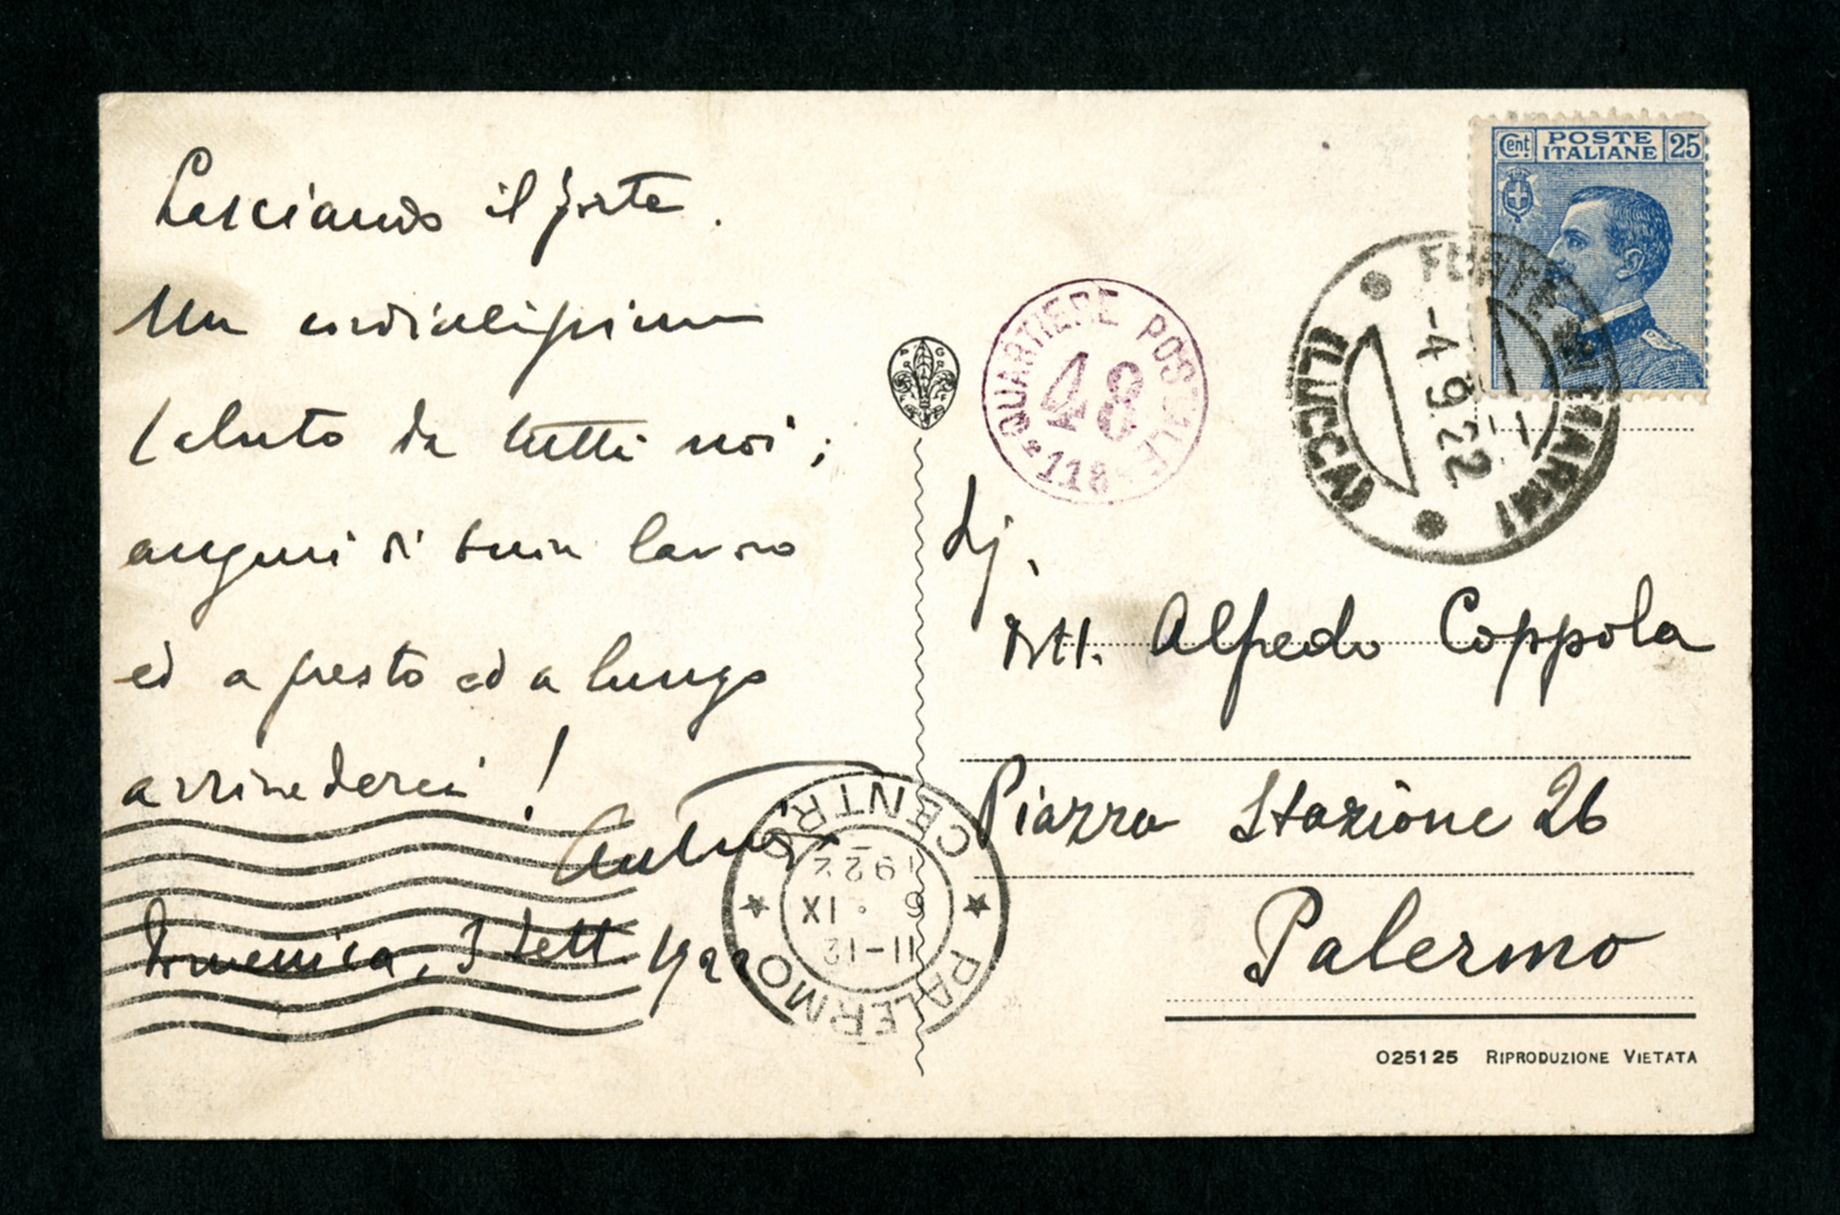 Lasciando il forte.
Un cordialissimo
saluto da tutti noi;
auguri di buon lavoro
ed a presto ed a lungo
arrivederci!
Domenica, 3 Sett. 1922
Cent. POSTE ITALIANE 25
FORTE DEI MARMI
(LUCCA)
-4.9.22
QUARTIERE POSTALE
48
*118*
P G
Sig.
Dott. Alfredo Coppola
Piazza Stazione 26
Palermo
PALERMO CENTRO
11-12
6 · IX
1922
025125 RIPRODUZIONE VIETATA